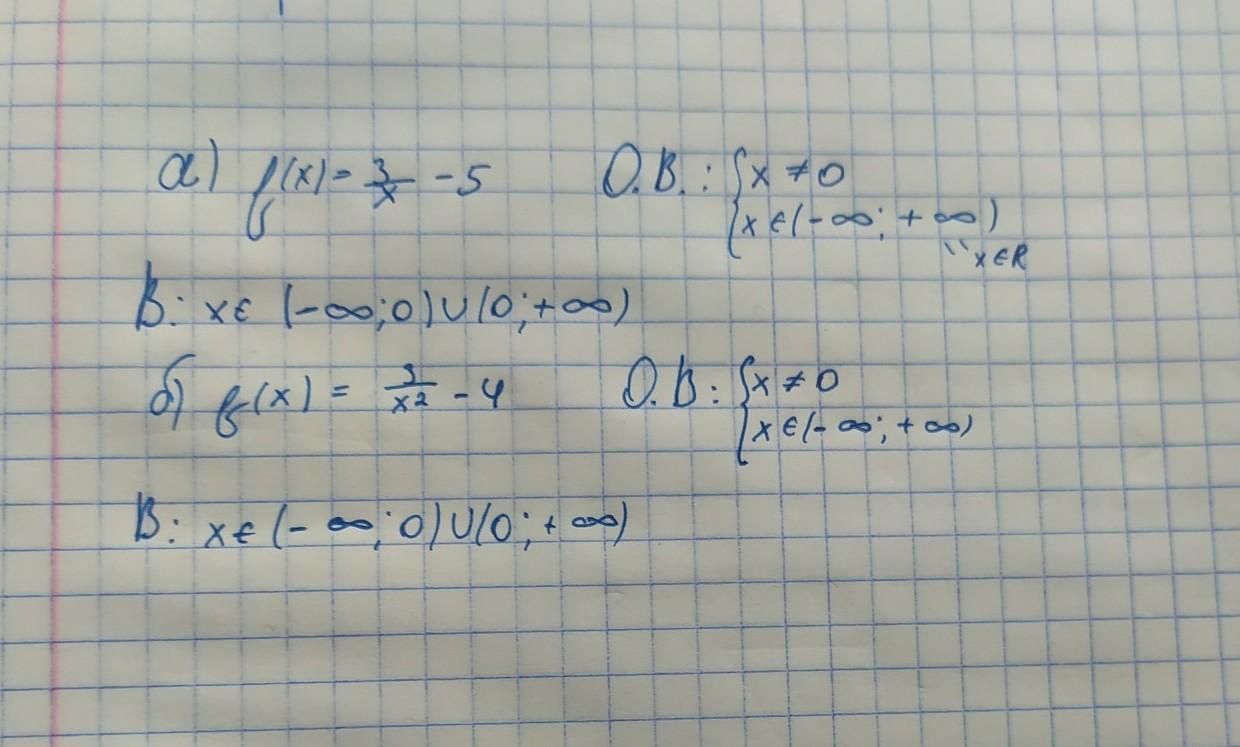 а) f(x) = 3/x - 5 О.В.: { x ≠ 0
{ x ∈ (-∞; +∞)
" x ∈ R
В: x ∈ (-∞; 0) ∪ (0; +∞)
б) f(x) = 3/x² - 4 О.В: { x ≠ 0
{ x ∈ (-∞; +∞)
В: x ∈ (-∞; 0) ∪ (0; +∞)